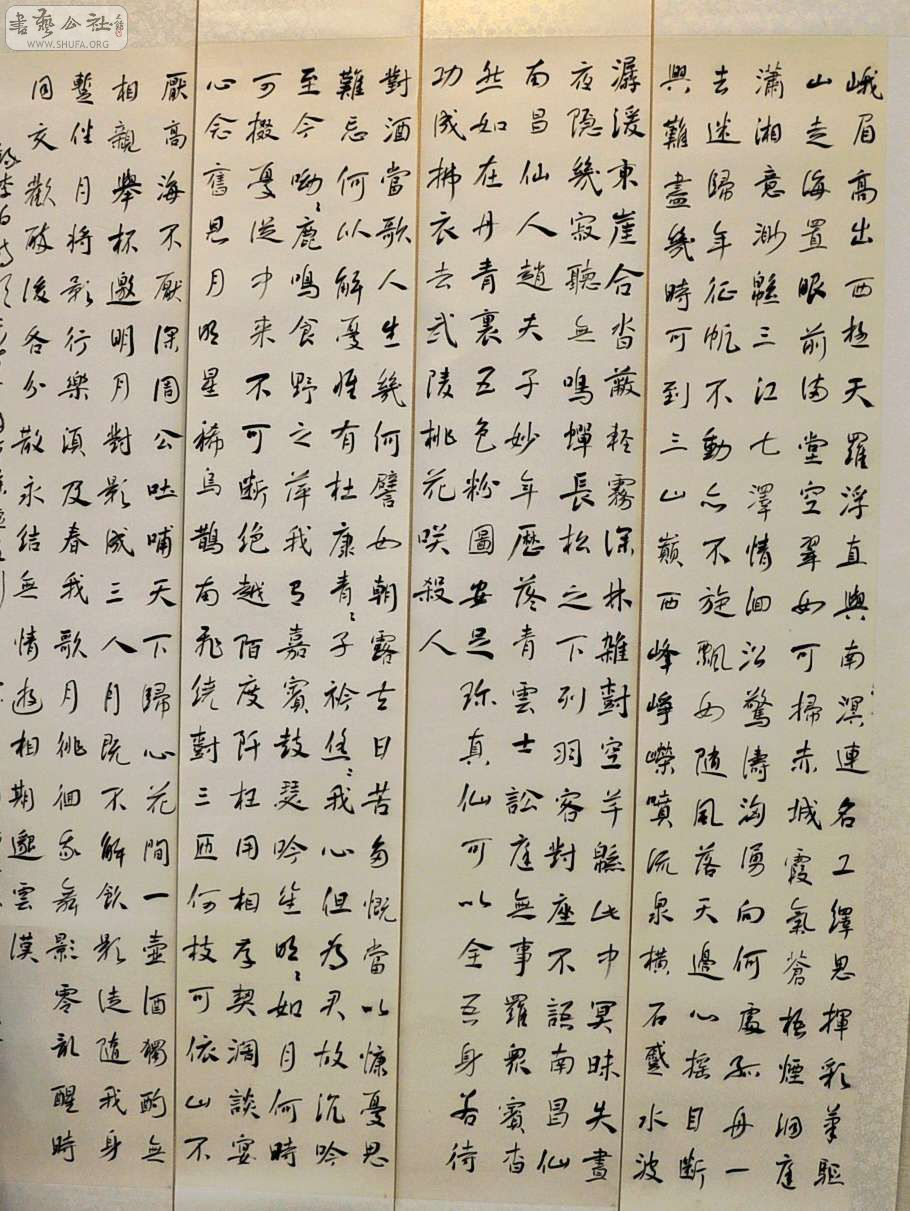 書藝公社
WWW.SHUFA.ORG
峨眉高出西極天羅浮直與南溟連名工繹思揮彩筆驅
山走海置眼前滿堂空翠如可掃赤城霞氣蒼梧煙洞庭
瀟湘意渺緜三江七澤情洄沿驚濤洶湧向何處孤舟一
去迷歸年征帆不動亦不旋飄如隨風落天邊心搖目斷
興難盡幾時可到三山巔西峰崢嶸噴流泉橫石蹙水波
潺湲東崖合沓蔽輕霧深林雜對空芊緜此中冥昧失晝
夜隱幾寂聽無鳴蟬長松之下列羽客對座不語南昌仙
南昌仙人趙夫子妙年歷落青雲士訟庭無事羅衆賓杳
然如在丹青裏五色粉圖安足珍真仙可以全吾身若待
功成拂衣去武陵桃花咲殺人
對酒當歌人生幾何譬如朝露去日苦多慨當以慷憂思
難忘何以解憂惟有杜康青〻子衿悠〻我心但為君故沉吟
至今呦〻鹿鳴食野之萍我有嘉賓鼓瑟吹笙明〻如月何時
可掇憂從中来不可斷絕越陌度阡枉用相存契闊談宴
心念舊恩月明星稀烏鵲南飛繞對三匝何枝可依山不
厭高海不厭深周公吐哺天下歸心花間一壺酒獨酌無
相親舉杯邀明月對影成三人月既不解飲影徒隨我身
暫伴月將影行樂須及春我歌月徘徊我舞影零亂醒時
同交歡醉後各分散永結無情遊相期邈雲漢
李白詩